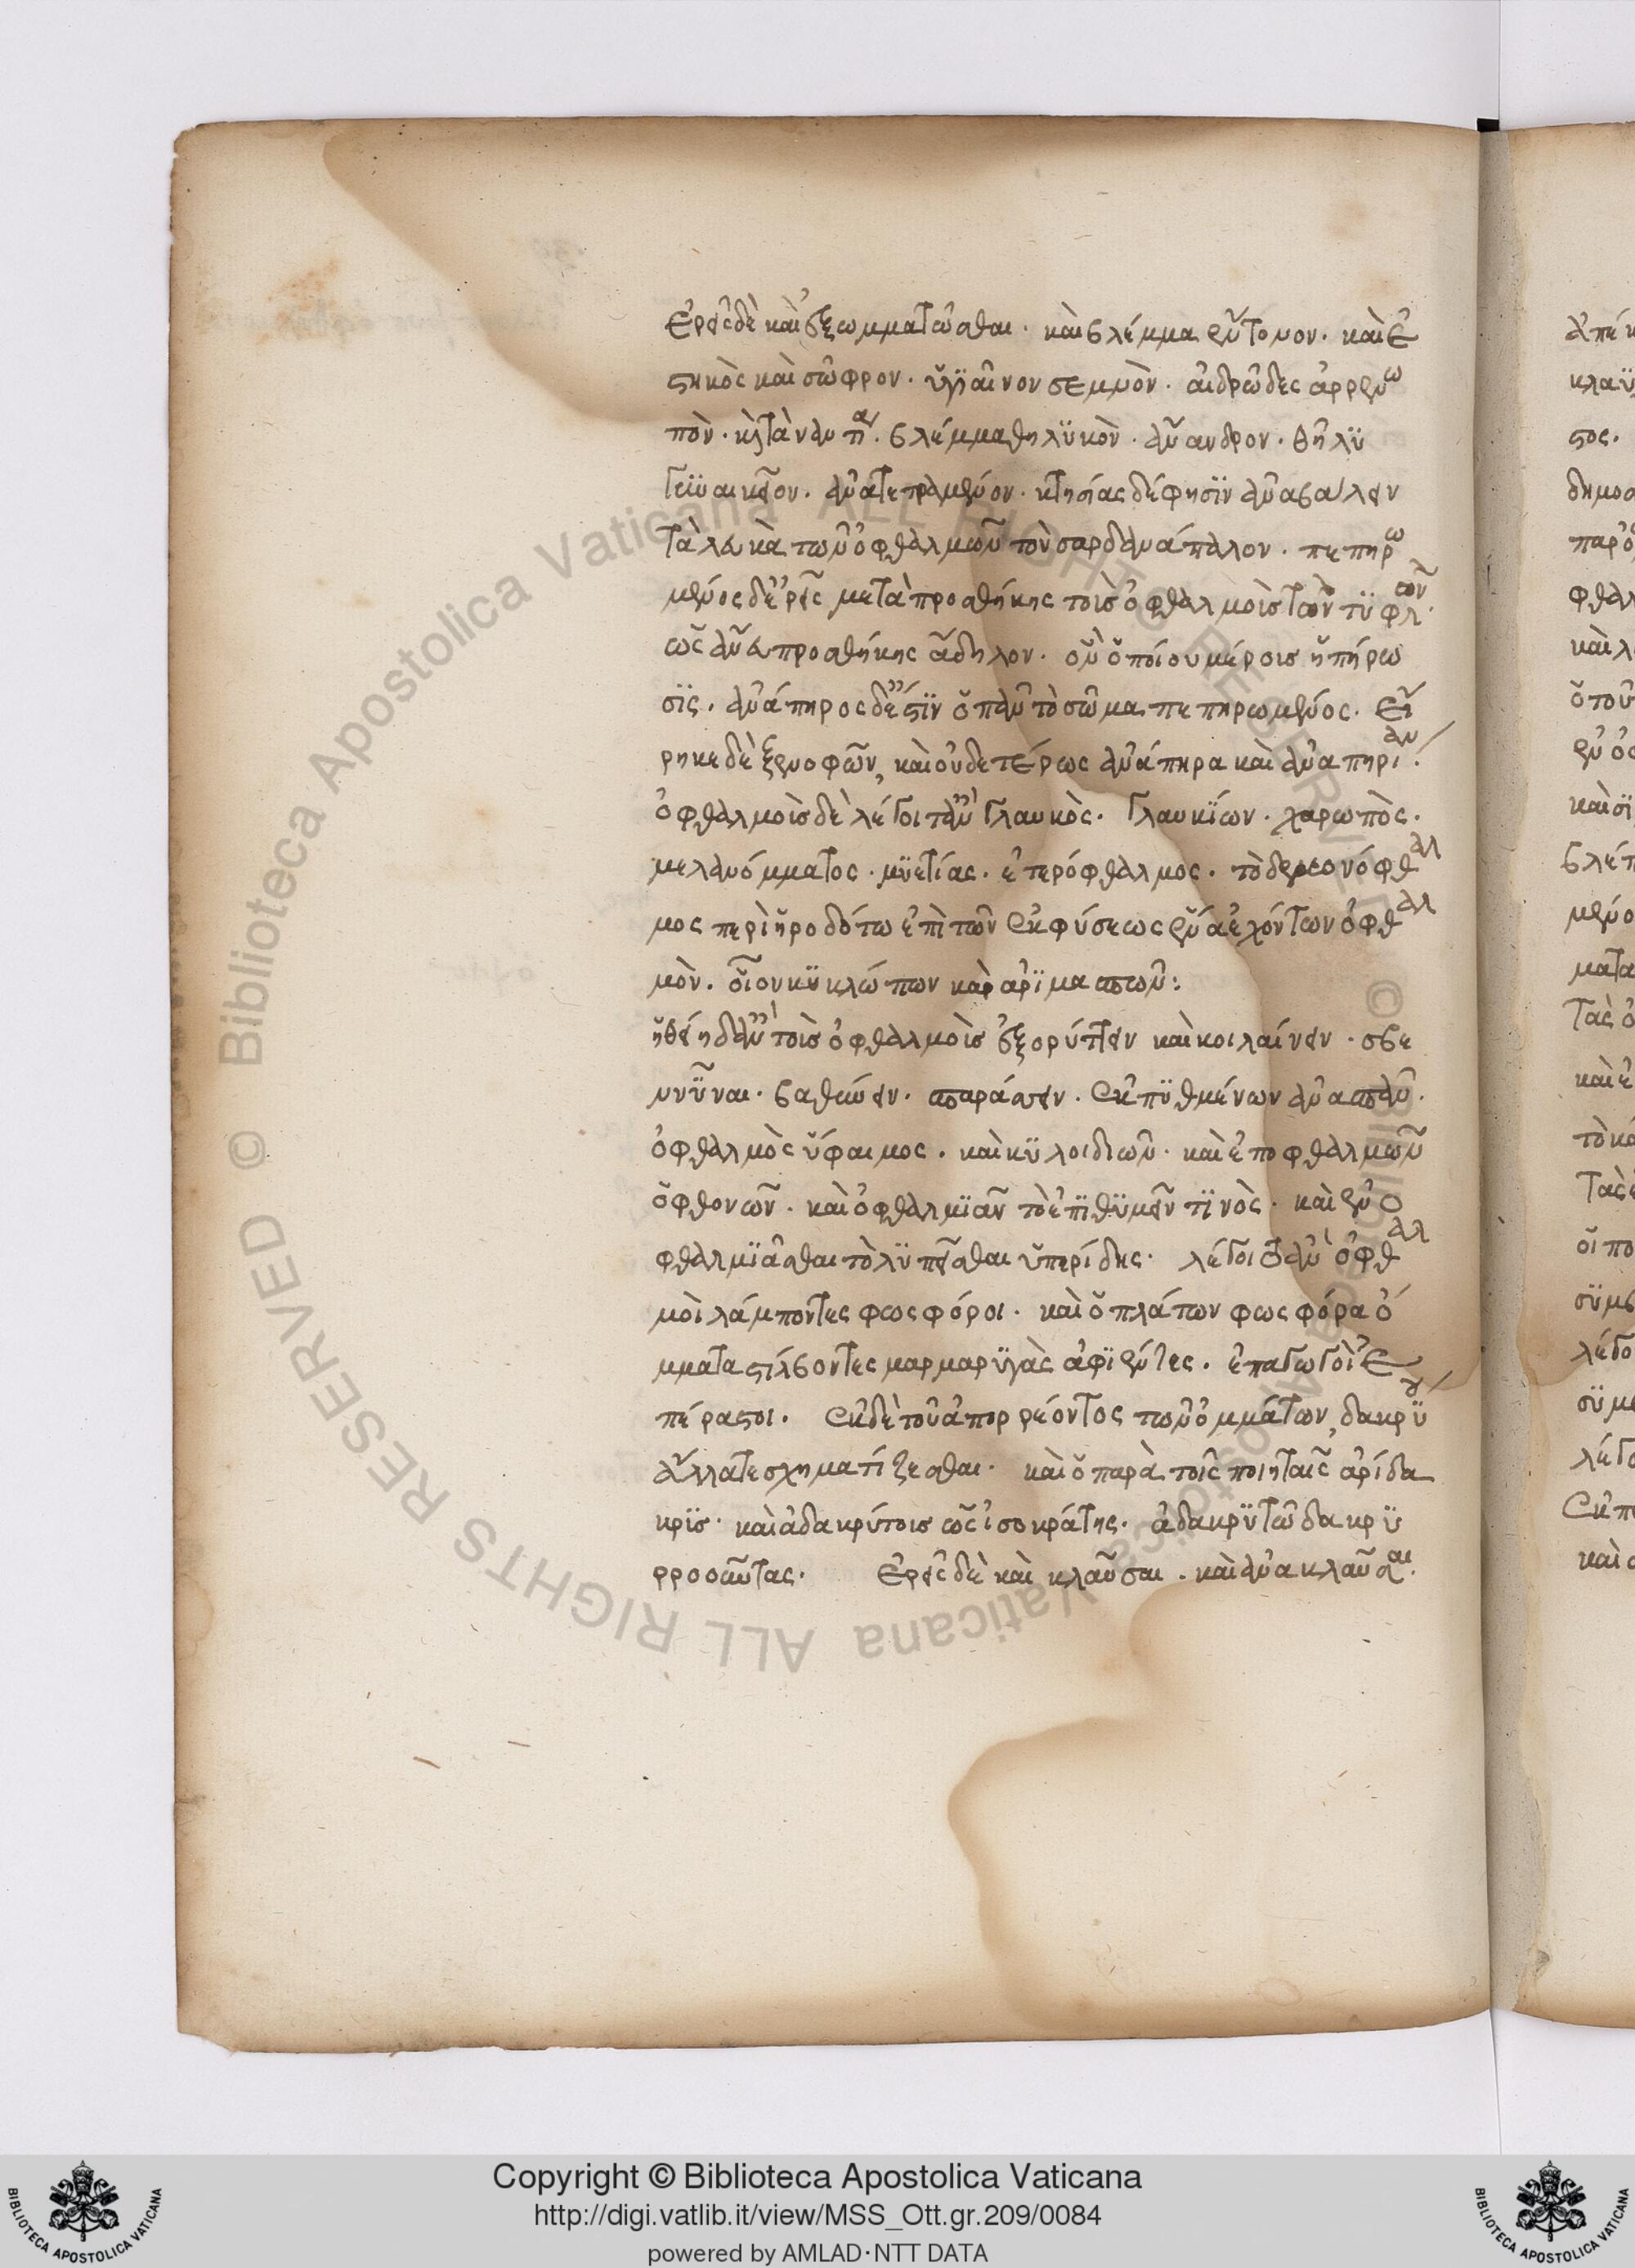 ἐρεῖς δὲ καὶ ἐξωμματῶσθαι· καὶ βλέμμα εὔτονον· καὶ ἑ
στηκὸς καὶ σῶφρον· ὑγιαῖνον σεμνὸν· αἰδρῶδες ἀρρενω
πὸν· καὶ τὰναντία· βλέμμα θηλυκὸν· ἄνανδρον· θῆλυ
γυναικεῖον· ἀνατετραμένον· κτησίας δέ φησιν ἀναβάλλειν
τὰ λευκὰ τῶν ὀφθαλμῶν τὸν σαρδανάπαλον· πεπηρω
μένος δὲ ἐρεῖς μετὰ προσθήκης τοῖς ὀφθαλμοῖς τὸν τυφλὸν·
ὡς ἄνευ προσθήκης ἄδηλον· οὗ ὁποίου μέροις ἡ πήρω
σις· ἀνάπηρος δέ ἐστιν ὁ πᾶν τὸ σῶμα πεπηρωμένος· εἴ
ρηκε δὲ ξενοφῶν, καὶ οὐδετέρως ἀνάπηρα καὶ ἀναπηρίαν·
ὀφθαλμοῖς δὲ λέγοιτ' ἂν γλαυκὸς· γλαυκίων· χαρωπὸς·
μελανόμματος· μυετίας· ἑτερόφθαλμος· τὸ δὲ μονόφθαλ
μος περὶ ἡροδότω ἐπὶ τῶν ἐκ φύσεως ἕνα ἐχόντων ὀφθαλ
μὸν· οἷον κυκλώπων καὶ ἀριμασπῶν:
ἡθείη δ' ἂν τοῖς ὀφθαλμοῖς ἐξορύττειν καὶ κοιλαίνειν· σβε
ννῦναι· βαθεώειν· σπαράσσειν· ἐκ πυθμένων ἀνασπᾶν·
ὀφθαλμὸς ὕφαιμος· καὶ κυλοιδιῶν· καὶ ἐποφθαλμῶν
ὁ φθονῶν· καὶ ὀφθαλμιᾶν τὸ ἐπιθυμεῖν τινὸς· καὶ ἐνο
φθαλμιᾶσθαι τὸ λυπεῖσθαι ὑπερίδης· λέγοις δ' ἂν ὀφθαλ
μοὶ λάμποντες φωσφόροι· καὶ ὁ πλάτων φωσφόρα ὄ
μματα στίλβοντες μαρμαρυγὰς ἀφιέντες· ἐπαγωγοὶ ἐ
πέραστοι· ἐκ δὲ τοῦ ἀπορρέοντος τῶν ὀμμάτων, δακρύου
ἄλλα τε σχηματίζεσθαι· καὶ ὁ παρὰ τοῖς ποιηταῖς ἀρίδα
κρις· καὶ ἀδακρύτοις ὡς ἰσοκράτης· ἀδακρυτῶ δακρυ
ρροοῦντας· ἐρεῖς δὲ καὶ κλαῦσαι· καὶ ἀνακλαῦσαι·
Copyright © Biblioteca Apostolica Vaticana
http://digi.vatlib.it/view/MSS_Ott.gr.209/0084
powered by AMLAD·NTT DATA